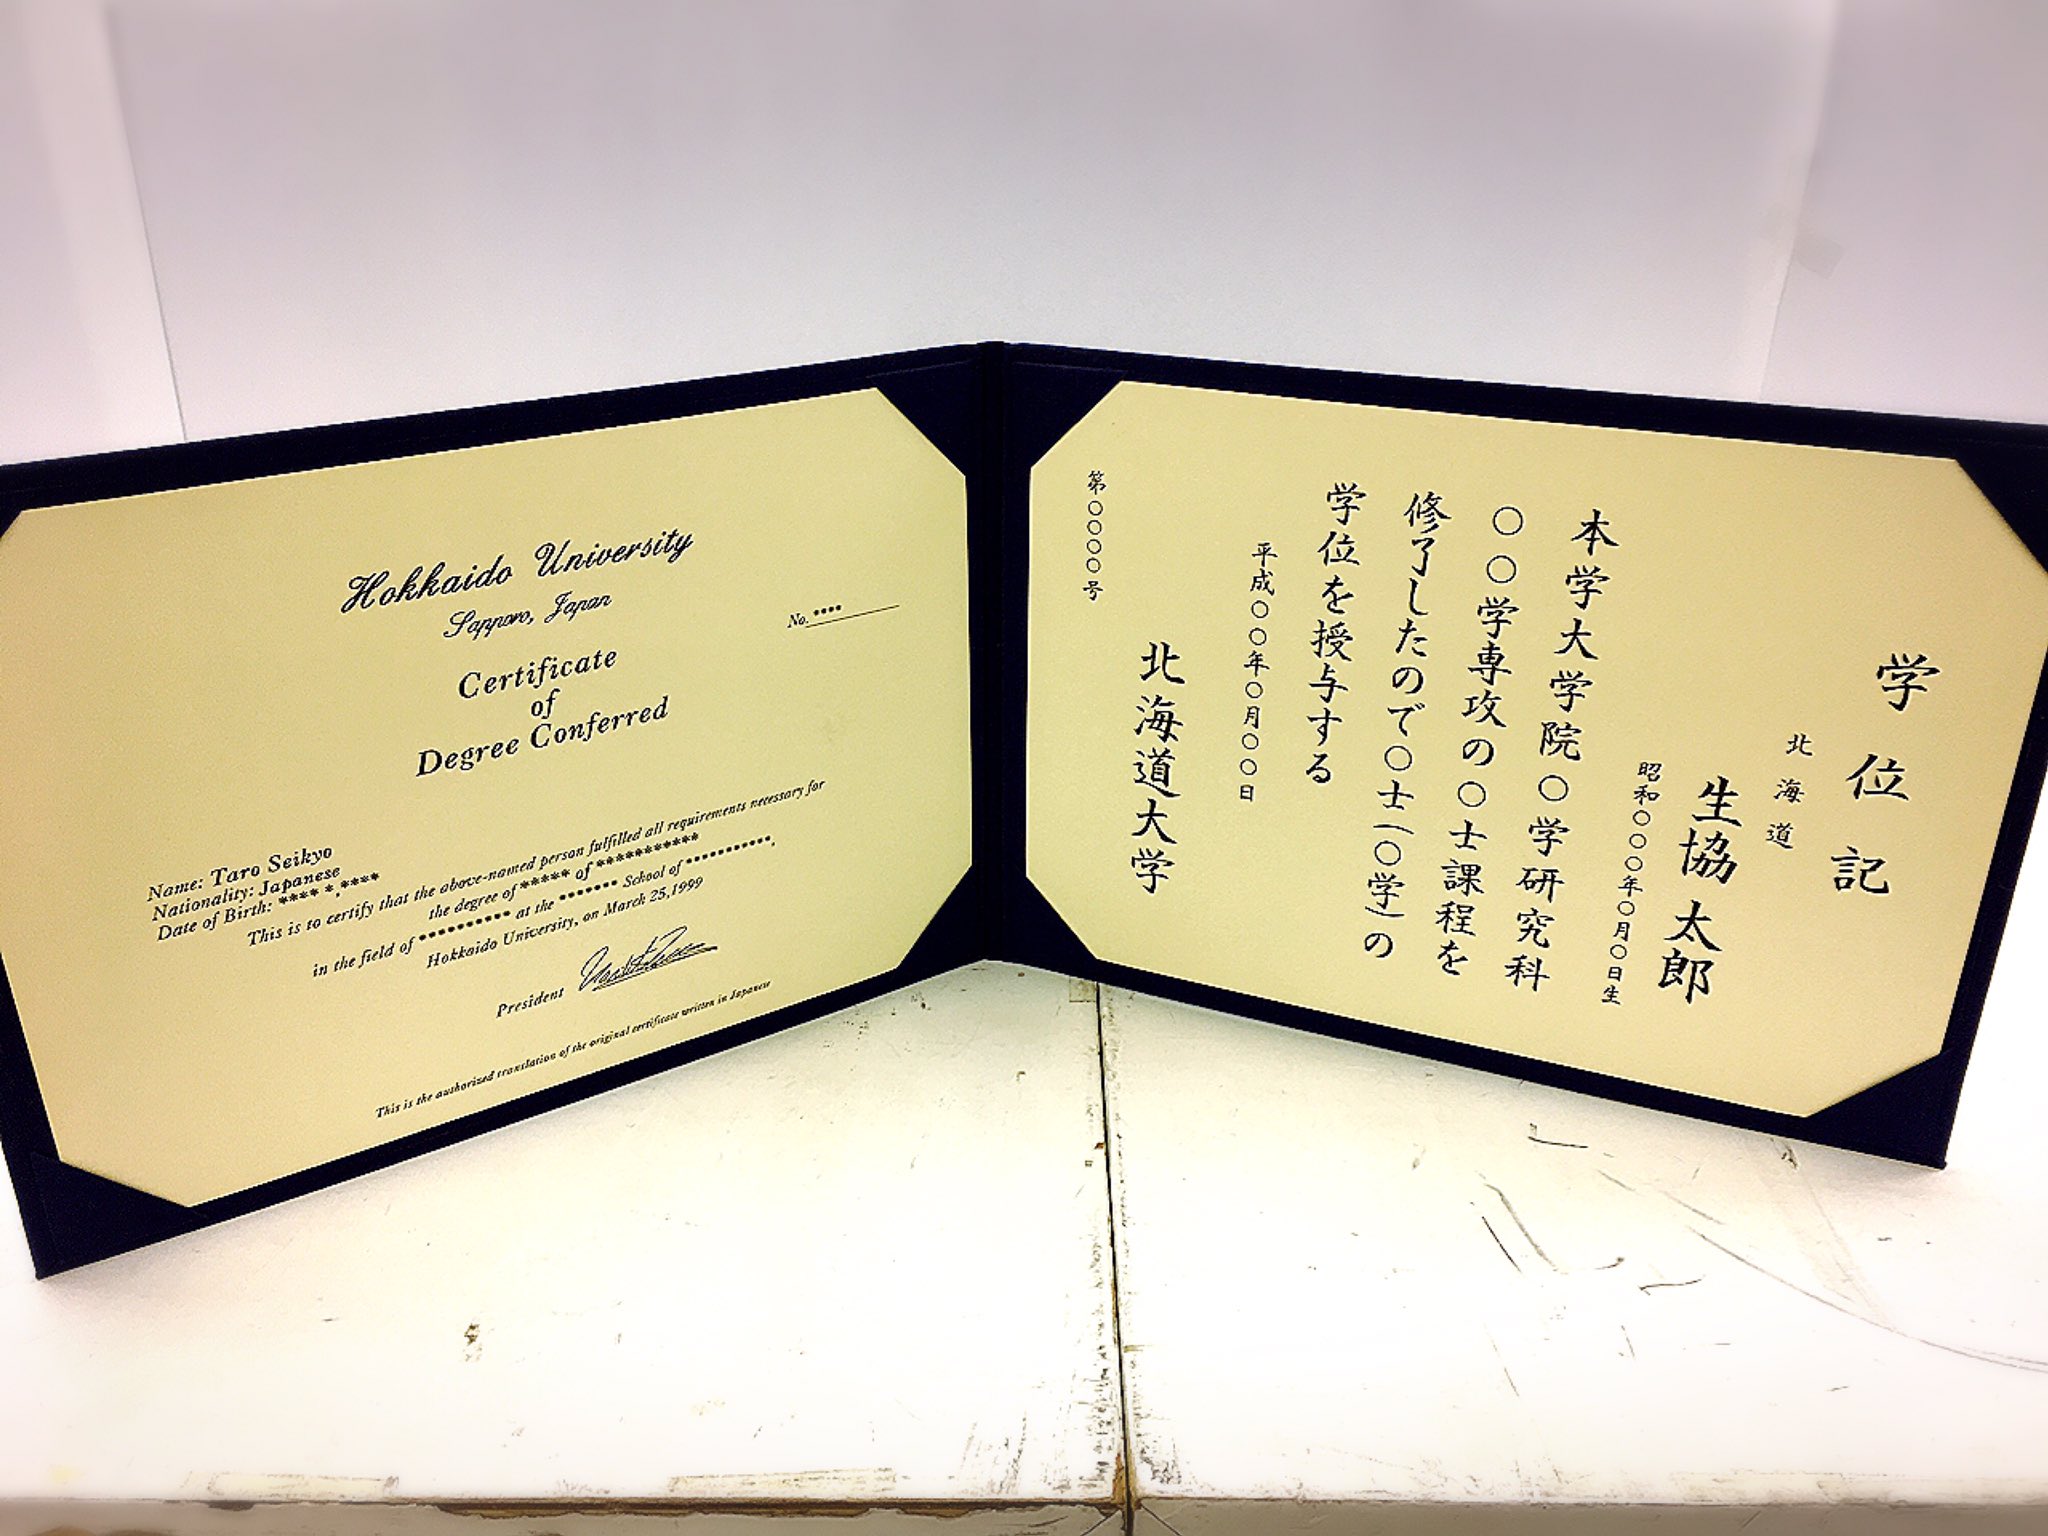 Hokkaido University
Sapporo, Japan
No. ****
Certificate
of
Degree Conferred
Name: Taro Seikyo
Nationality: Japanese
Date of Birth: **** *,****
This is to certify that the above-named person fulfilled all requirements necessary for
the degree of ***** of ***********
in the field of ********** at the ******* School of ***********,
Hokkaido University, on March 25,1999
President
This is the authorized translation of the original certificate written in Japanese
学位記
北海道
生協太郎
昭和〇〇〇年〇月〇日生
本学大学院〇学研究科
〇〇学専攻の〇士課程を
修了したので〇士(〇学)の
学位を授与する
平成〇〇年〇月〇〇日
北海道大学
第〇〇〇〇号